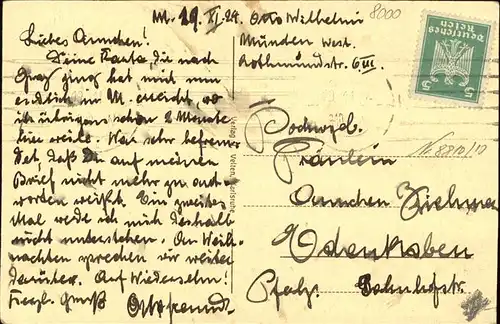 M. 29. XI. 24. Otto Wilhelmi
München West.
Rothmundstr. 6 III.
8000
Deutsches
Reich
5 5
Liebes Annchen!
Deine Karte, die nach
Graz ging hat mich nun
endlich in M. erreicht, wo
ich übrigens schon 2 Monate
hier weile. War sehr befremdet,
daß Du auf meinen
Brief nicht mehr zu antworten
weißt. Ein zweites
Mal werde ich mich deshalb
nicht unterstehen. An Weihnachten
sprechen wir weiter
darüber. Auf Wiedersehn!
Herzl. Gruß
Verlag Velten, Karlsruhe
Fräulein
Annchen
Edenkoben
Pfalz. Bahnhofstr.
Nr. 8810/10